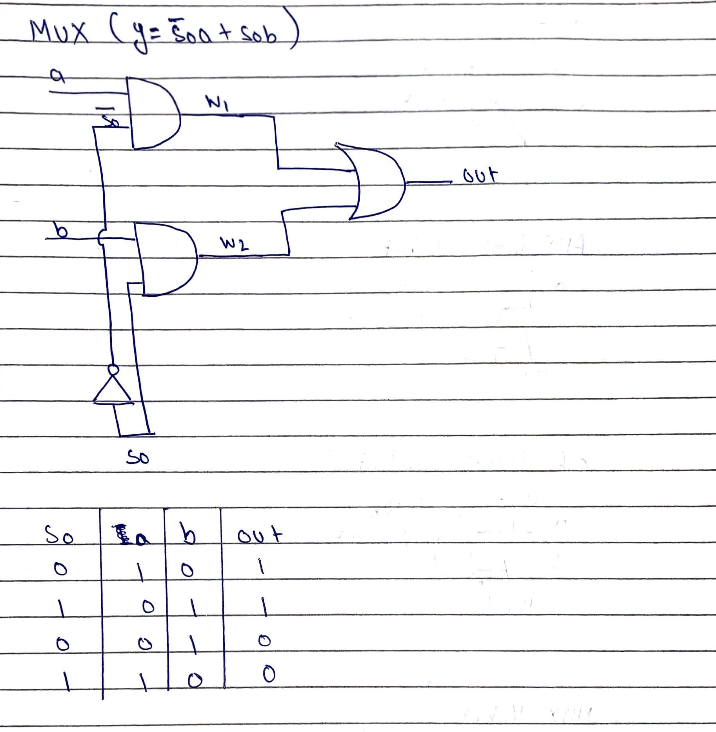 MUX (y = s̅0a + s0b)
a
s̅0
W1
out
b
W2
S0
S0 a b out
0 1 0 1
1 0 1 1
0 0 1 0
1 1 0 0